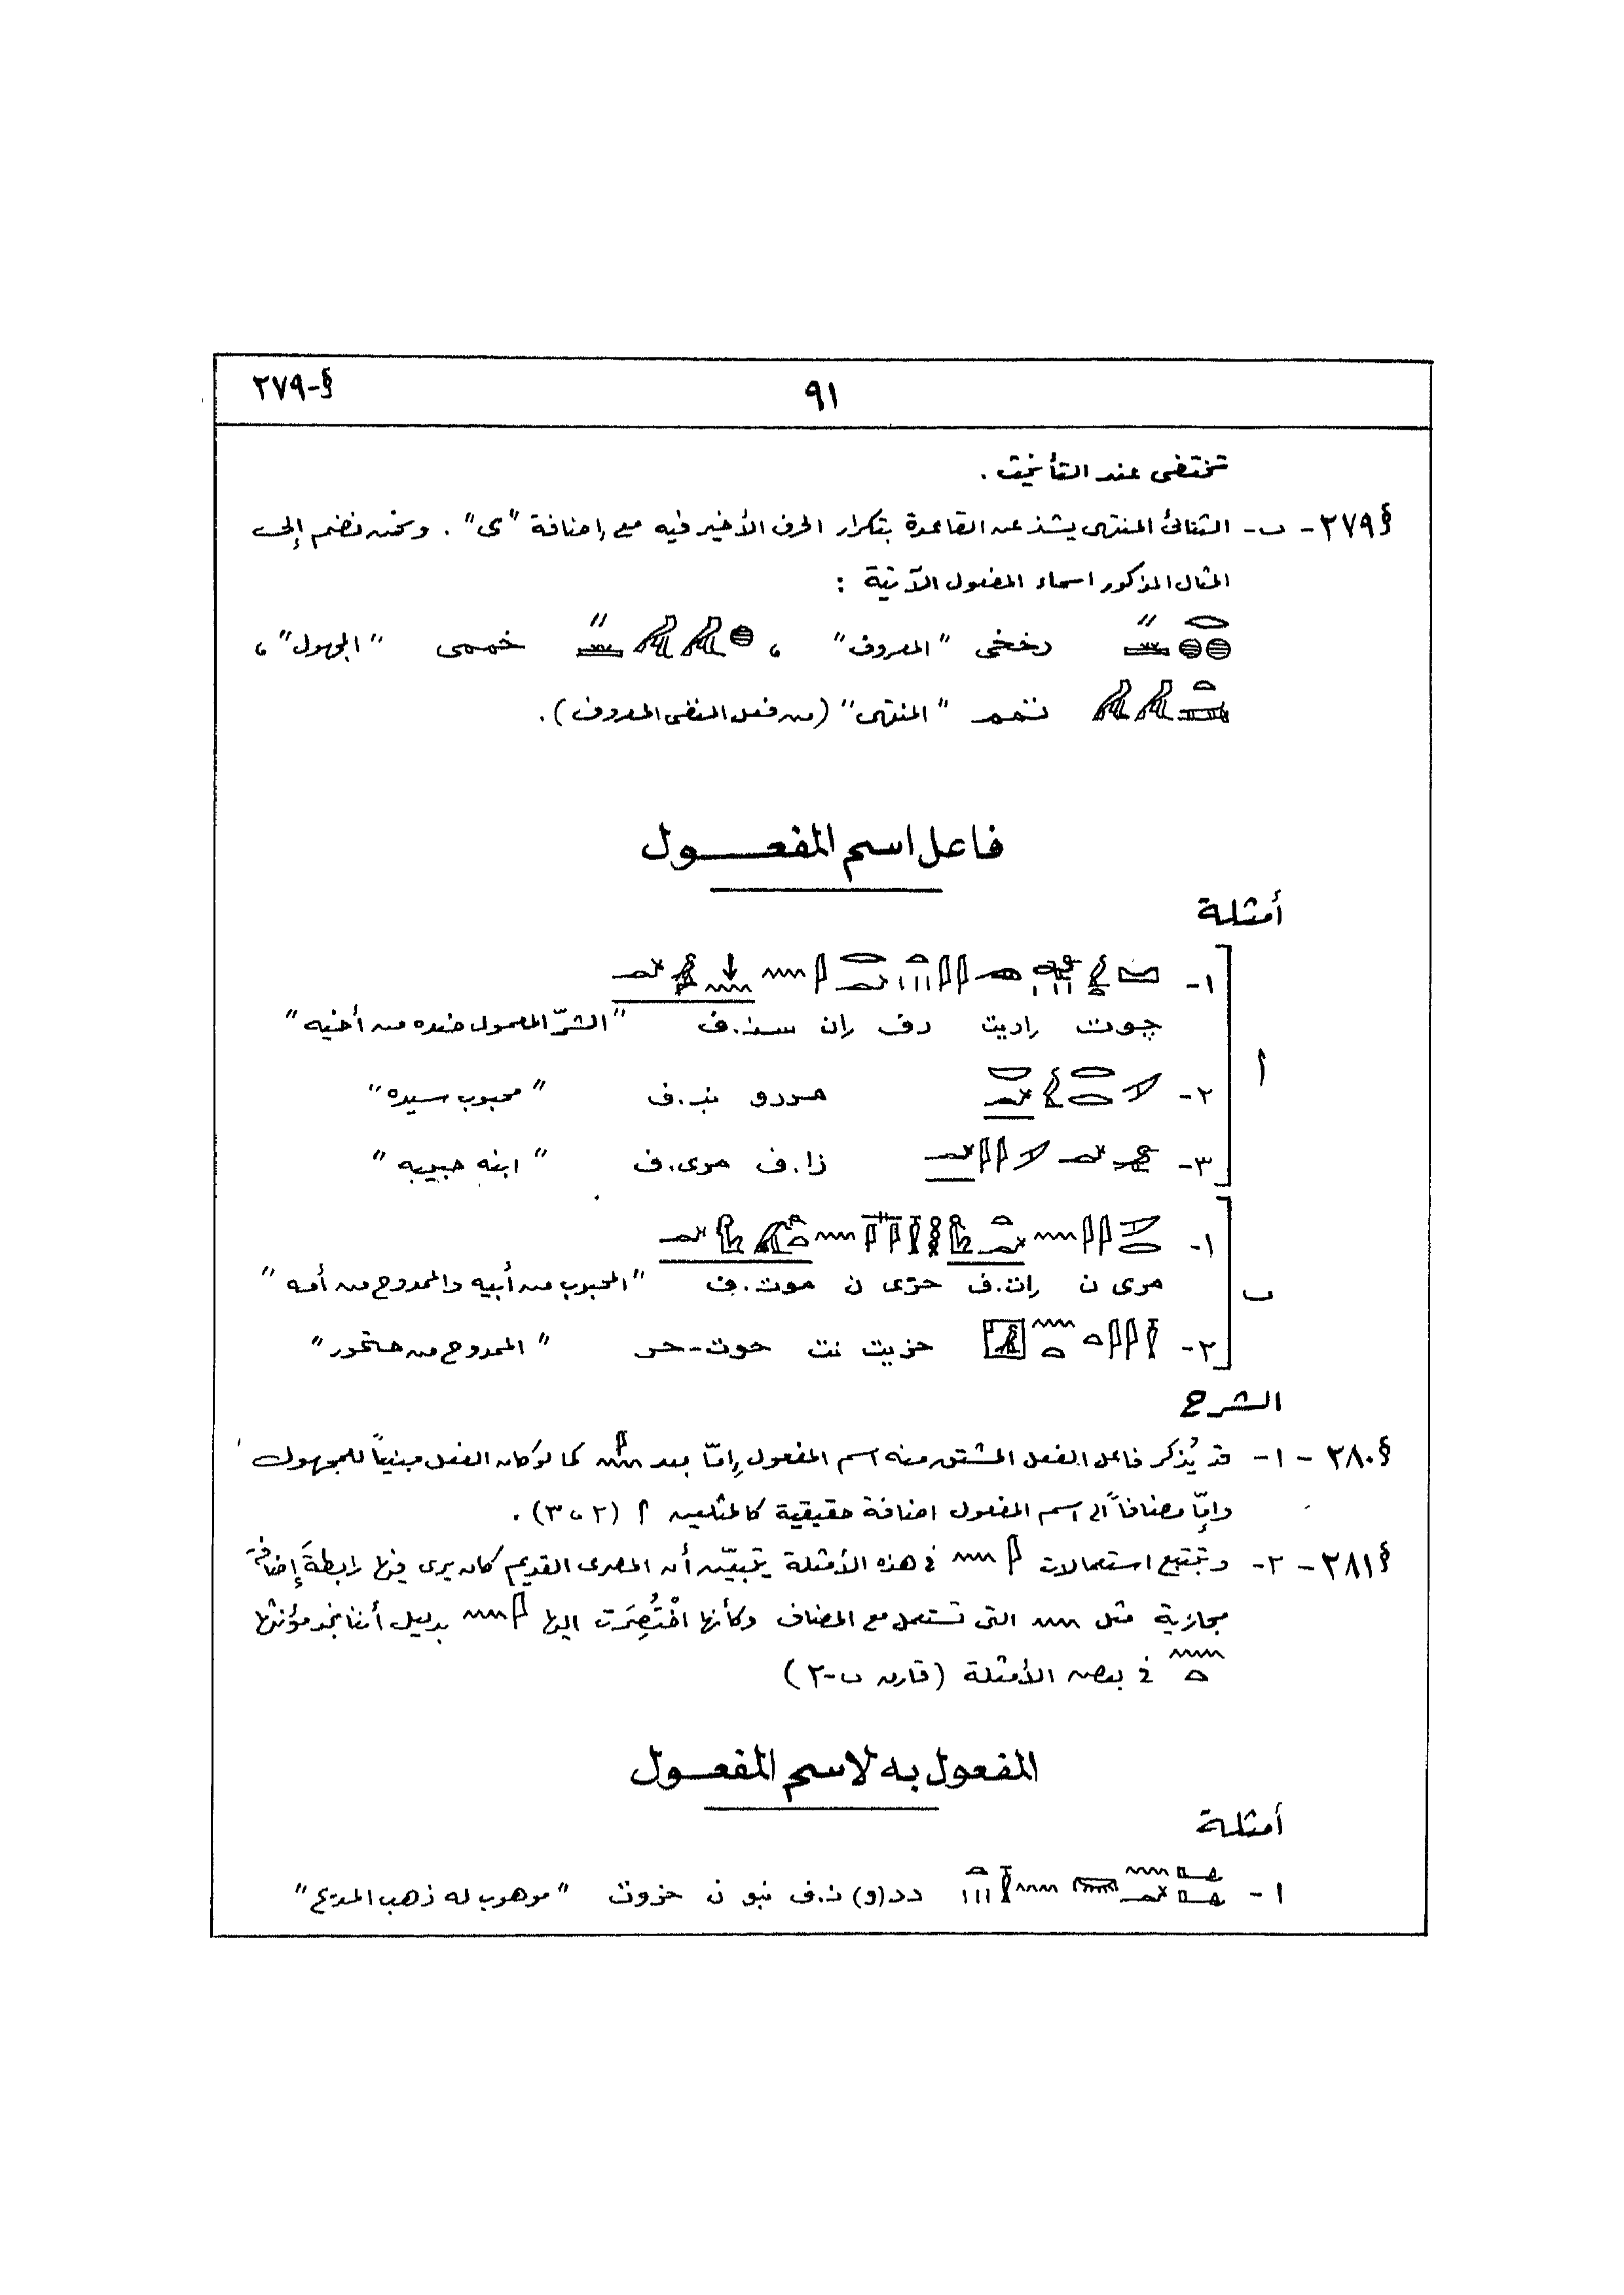 §-٢٧٩
٩١
تختفى عند التأنيث .
§٢٧٩ - ب - الثنائى المنتهى يشذ عن القاعدة بتكرار الحرف الأخير فيه مع إضافة "ى" . ونحن نضم إلى
المثال المذكور اسماء المفعول الآتية :
رخخى "المعروف" ، خممى "المجهول" ،
نتمم "المنتهى" (من فعل النفى المعروف) .
فاعل اسم المفعــول
أمثلة
أ
١-
چوت راديت رف ران سن.ف "الشرّ المعمول ضده من أخيه"
٢- مررو نب.ف "محبوب سيده"
٣- زا.ف مرى.ف "ابنه حبيبه"
ب
١-
مرى ن ات.ف حزى ن موت.ف "المحبوب من أبيه والممدوح من أمه"
٢- حزيت نت حوت-حر "الممدوح من حتحور"
الشرح
§٢٨٠ - ١ - قد يُذكر فاعل الفعل المشتق منه اسم المفعول إمّا بعد كما لو كان الفعل مبنياً للمجهول
وإمّا مضافاً الى اسم المفعول اضافة حقيقية كالمثلين أ (٢ ، ٣) .
§٢٨١ - ٢ - وبتتبع استعمالات فى هذه الأمثلة يتبيّن أن المصرى القديم كان يرى فيها رابطةَ إضافة
مجازية مثل التى تستعمل مع المضاف وكأنها اخْتُصِرَت اليها بدليل أننا نجد مؤنثها
فى بعض الأمثلة (قارن ب-٢)
المفعول به لاسم المفعــول
أمثلة
١ - دد(و) ن.ف نبو ن حزوت "موهوب له ذهب المديح"